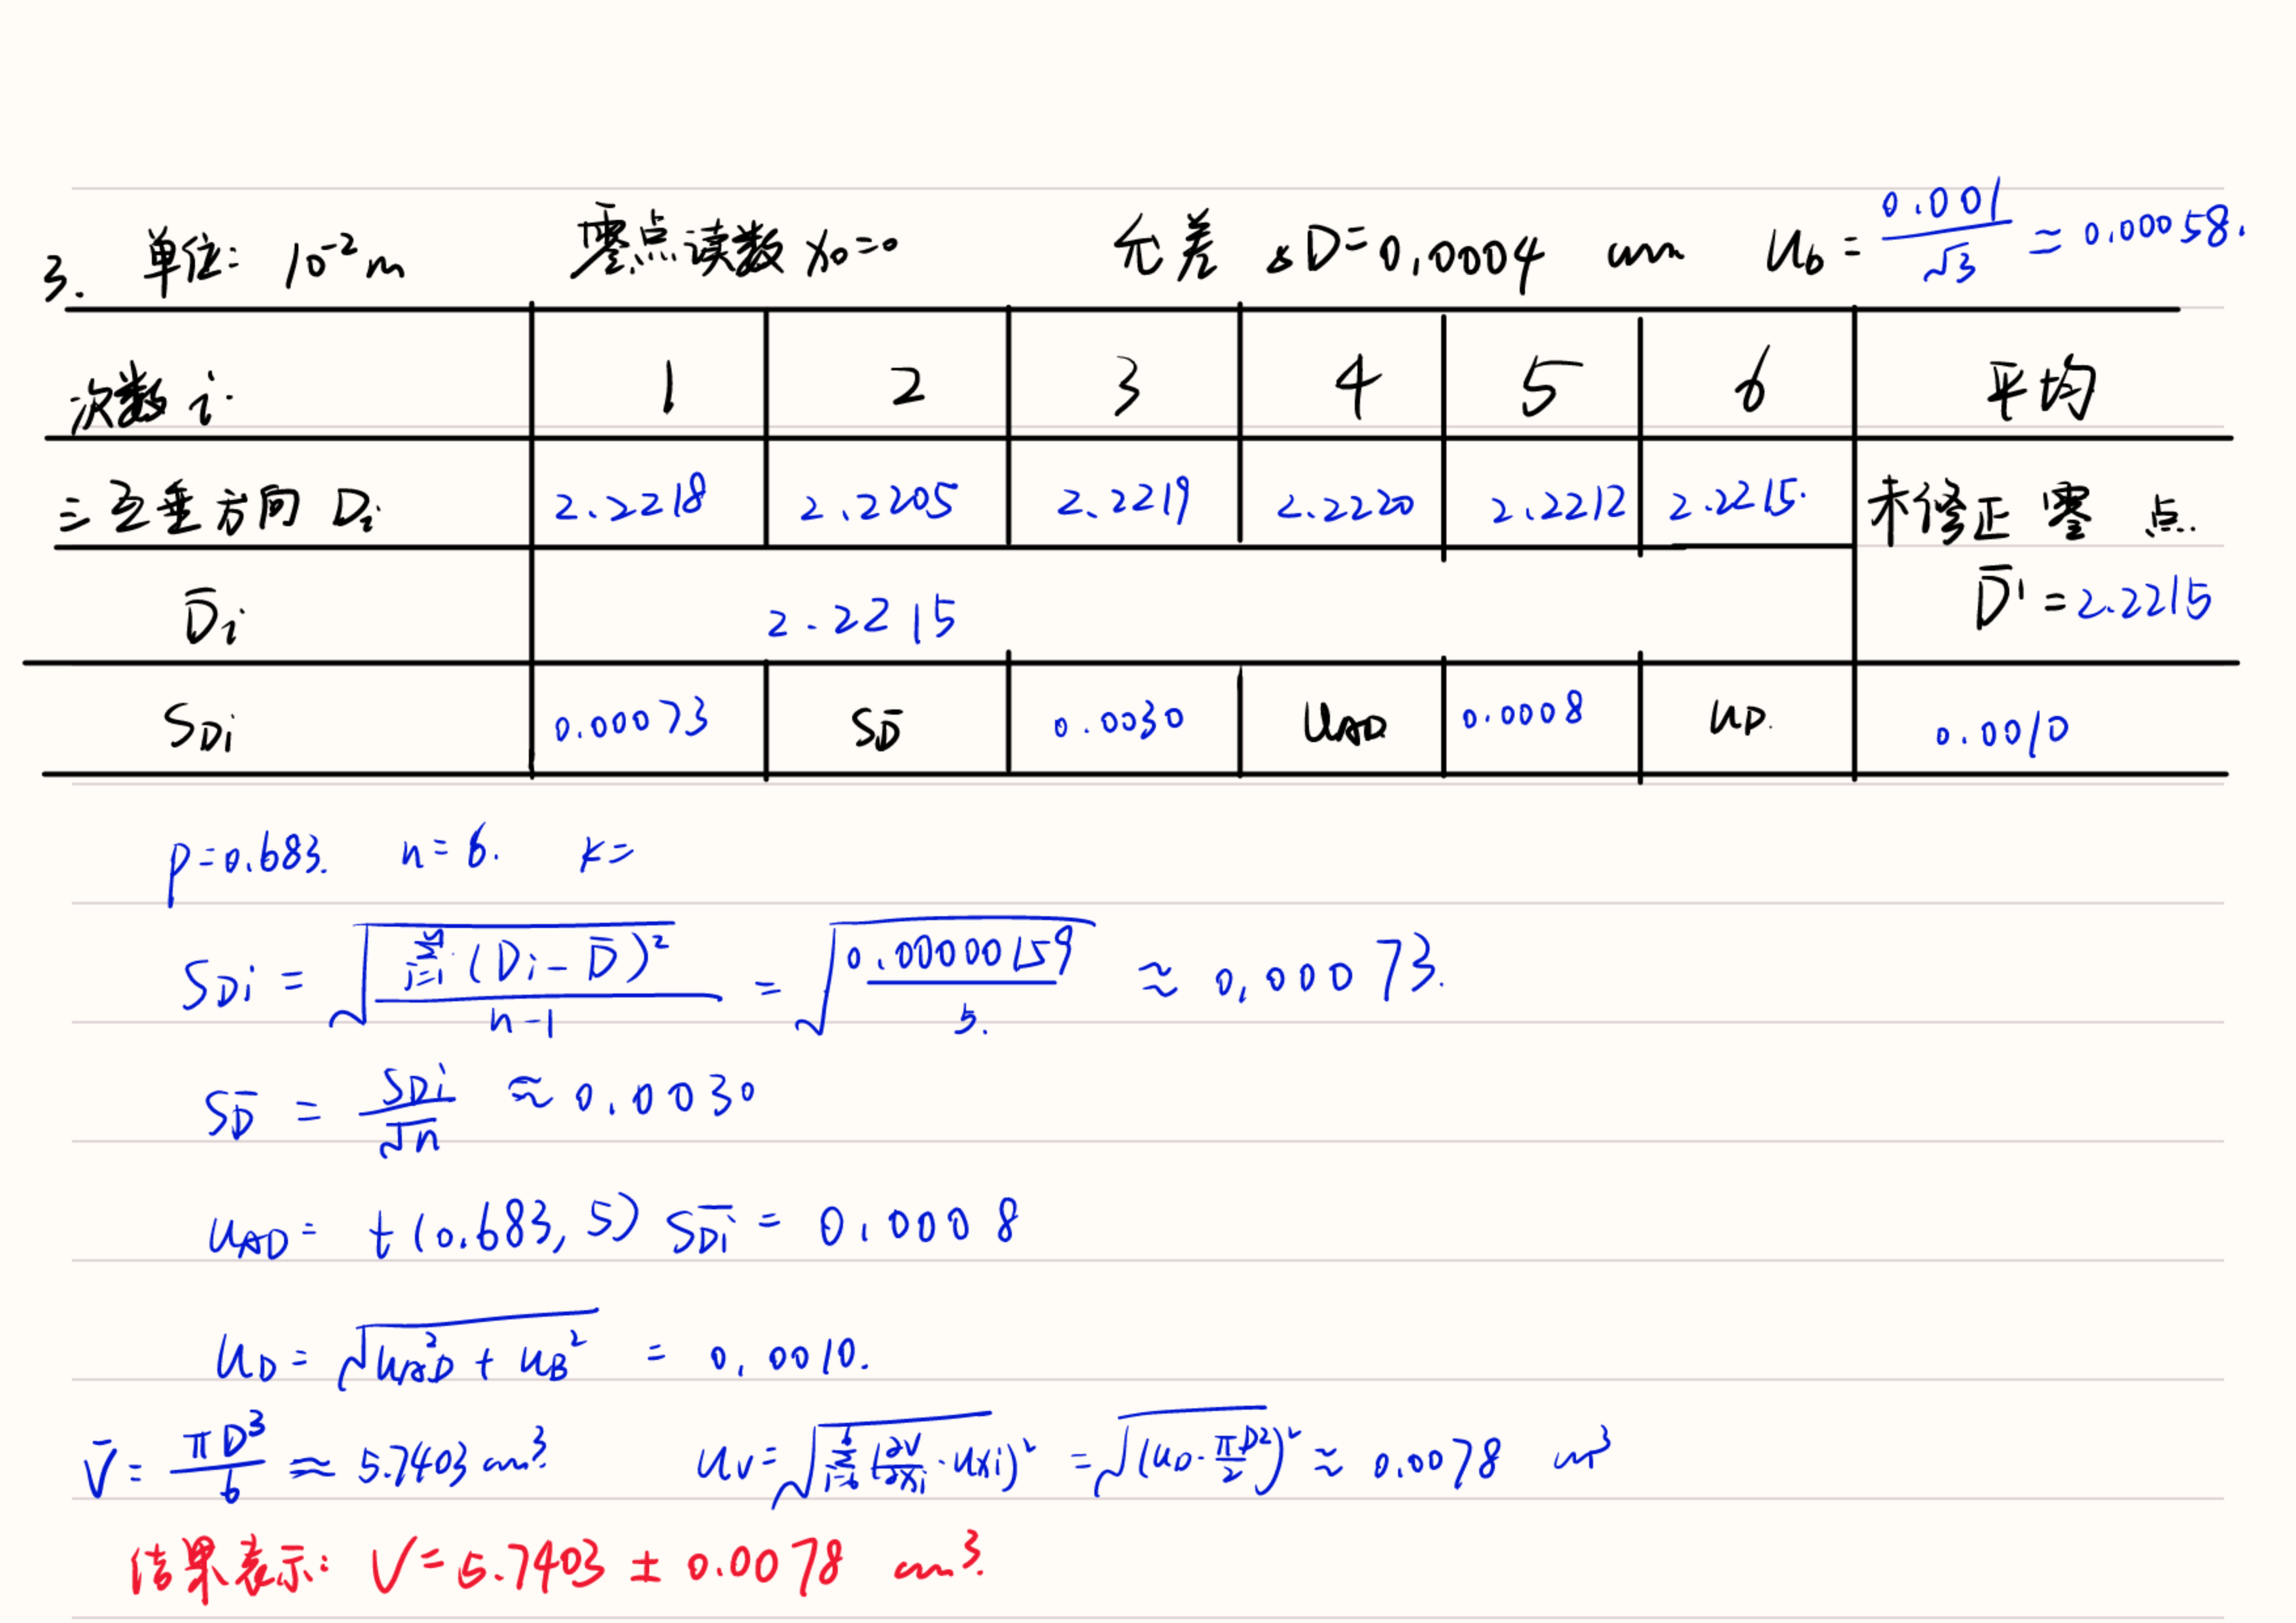 3. 单位: 10⁻²m 零点读数 x₀=0 允差 ΔD=0.0004 cm U_b = 0.001/√3 ≈ 0.00058.
次数 i 1 2 3 4 5 6 平均
三互垂方向 Dᵢ 2.2218 2.2205 2.2219 2.2220 2.2212 2.2215. 未修正零点.
D̄ᵢ 2.2215 D̄' = 2.2215
S_Di 0.00073 S_D̄ 0.0030 U_AD 0.0008 U_D. 0.0010
P=0.683. n=6. k=
S_Di = √(Σ_{i=1}^{n}(Dᵢ-D̄)²/(n-1)) = √(0.00000159/5.) ≈ 0.00073.
S_D̄ = S_Di/√n ≈ 0.0030
U_AD = t(0.683, 5) S_D̄i = 0.0008
U_D = √(U_AD² + U_B²) = 0.0010.
V̄ = πD³/6 ≈ 5.7403 cm³. U_V = √(Σ_{i=6}^{6}(∂V/∂xᵢ·U_xi)²) = √((U_D·πD²/2)²) ≈ 0.0078 cm³
结果表示: V = 5.7403 ± 0.0078 cm³.